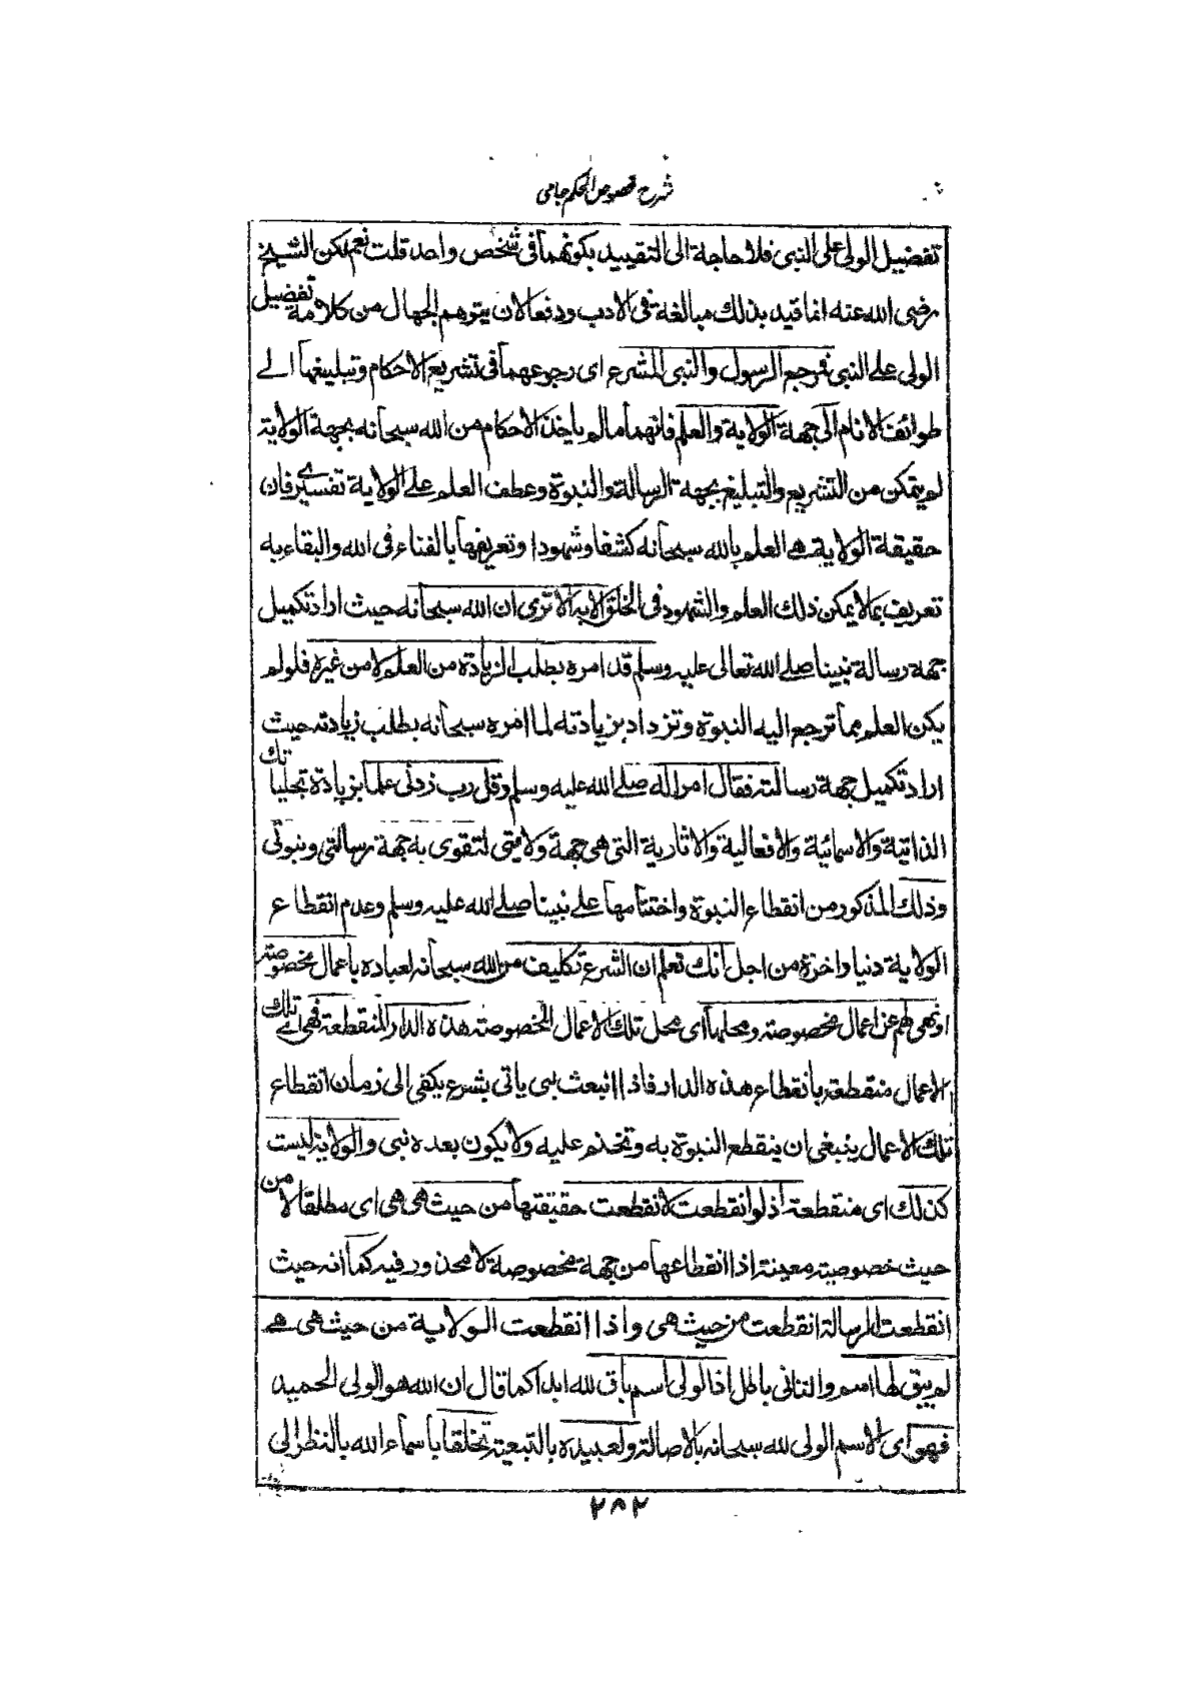 شرح فصوص الحكم جامى
تفضيل الولى على النبى فلا حاجة الى التقييد بكونهما فى شخص واحد قلت نعم لكن الشيخ
رضى الله عنه انما قيد بذلك مبالغة فى الادب ودفعا لان يتوهم الجهال من كلامه تفضيل
الولى على النبى فمرجع الرسول والنبى المشرع اى رجوعهما فى تشريع الاحكام وتبليغها الى
طوائف الانام الى جهة الولاية والعلم فانهما مالم ياخذ الاحكام من الله سبحانه بجهة الولاية
لم يتمكن من التشريع والتبليغ بجهة الرسالة والنبوة وعطف العلم على الولاية تفسير فان
حقيقة الولاية هى العلم بالله سبحانه كشفا وشهودا وتعريفها بالفناء فى الله والبقاء به
تعريف بما لا يمكن ذلك العلم والشهود فى الخلق الا به الا ترى ان الله سبحانه حيث اراد تكميل
جهة رسالة نبينا صلى الله تعالى عليه وسلم قد امره بطلب الزيادة من العلم لا من غيره فلو لم
يكن العلم مما ترجع اليه النبوة وتزداد بزيادته لما امره سبحانه بطلب زيادته حيث
اراد تكميل جهة رسالته فقال امرا له صلى الله عليه وسلم وقل رب زدنى علما بزيادة تجلياتك
الذاتية والاسمائية والافعالية والاثارية التى هى جهة ولايتى لتقوى به جهة رسالتى ونبوتى
وذلك المذكور من انقطاع النبوة واختتامها على نبينا صلى الله عليه وسلم وعدم انقطاع
الولاية دنيا واخرة من اجل انك تعلم ان الشرع تكليف من الله سبحانه لعباده باعمال مخصوصة
او نهى لهم عن اعمال مخصوصة ومحلها اى محل تلك الاعمال المخصوصة هذه الدار المنقطعة فهى اى تلك
الاعمال منقطعة بانقطاع هذه الدار فاذا انبعث نبى ياتى بشرع يكفى الى زمان انقطاع
تلك الاعمال ينبغى ان ينقطع النبوة به وتختم عليه ولا يكون بعده نبى والولاية ليست
كذلك اى منقطعة اذ لو انقطعت لانقطعت حقيقتها من حيث هى هى اى مطلقا لا من
حيث خصوصية معينة اذا انقطاعها من جهة مخصوصة لا محذور فيه كما انه حيث
انقطعت الرسالة انقطعت من حيث هى واذا انقطعت الولاية من حيث هى هى
لم يبق لها اسم والثانى باطل اذ الولى اسم باق لله ابدا كما قال ان الله هو الولى الحميد
فهو اى الاسم الولى لله سبحانه بالاصالة ولعبيده بالتبعية تخلقا باسماء الله بالنظر الى
٢٨٢